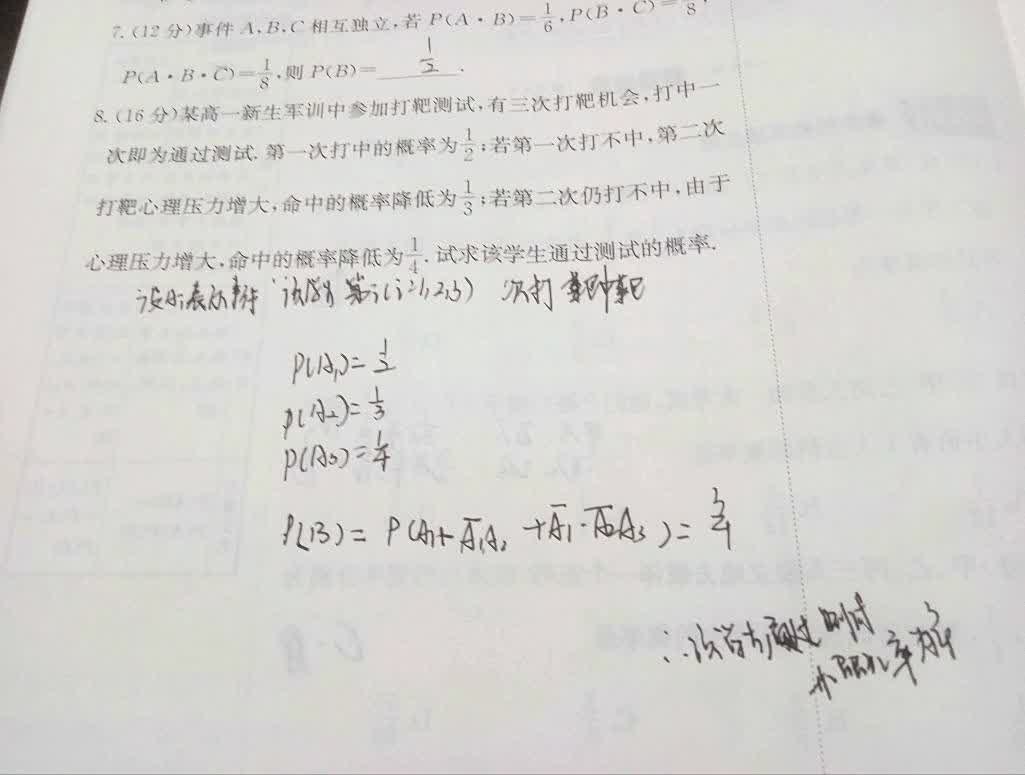 7.(12分)事件A,B,C相互独立,若P(A·B)=1/6,P(B·C)=1/8,
P(A·B·C̅)=1/8,则P(B)=1/2.
8.(16分)某高一新生军训中参加打靶测试,有三次打靶机会,打中一
次即为通过测试.第一次打中的概率为1/2;若第一次打不中,第二次
打靶心理压力增大,命中的概率降低为1/3;若第二次仍打不中,由于
心理压力增大,命中的概率降低为1/4.试求该学生通过测试的概率.
设Ai表示事件"该学生第i(i=1,2,3)次打中靶
P(A₁)=1/2
P(A₂)=1/3
P(A₃)=1/4
P(B)=P(A₁+A̅₁A₂+A̅₁·A̅₂A₃)=3/4
∴该学生通过测试
的概率为3/4